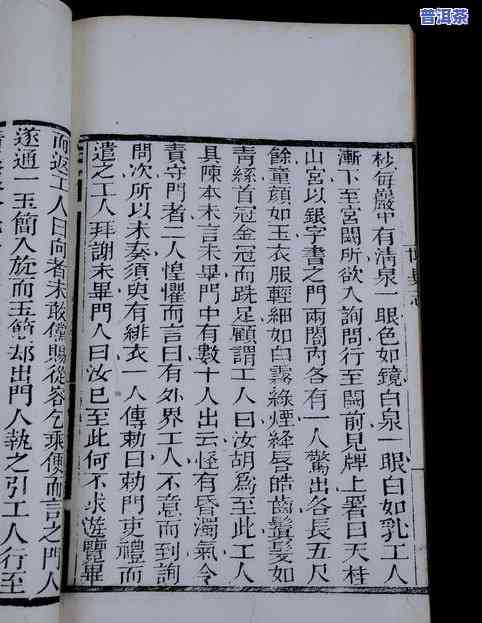 普洱茶
杪每巖中有清泉一眼色如鏡白泉一眼白如乳工人
漸下至宮闕所欲入詢問行至闕前見牌上署曰天桂
山宮以銀字書之門兩閤內各有一人驚出各長五尺
餘童顏如玉衣服輕細如白霧綠煙絳唇皓齒鬢髮如
青絲首冠金冠而跣足顧謂工人曰汝胡為至此工人
具陳本末言未畢門中有數十人出云怪有昏濁氣令
責守門者二人惶懼而言曰有外界工人不意而到詢
問次所以未奏須臾有緋衣一人傳勅曰勅門吏禮而
遣之工人拜謝未畢門人曰汝已至此何不求遊覽畢
而返工人曰向者未敢儻賜從容乞乘便而言之門人
遂通一玉簡入旋而玉簡却出門人執之引工人行至